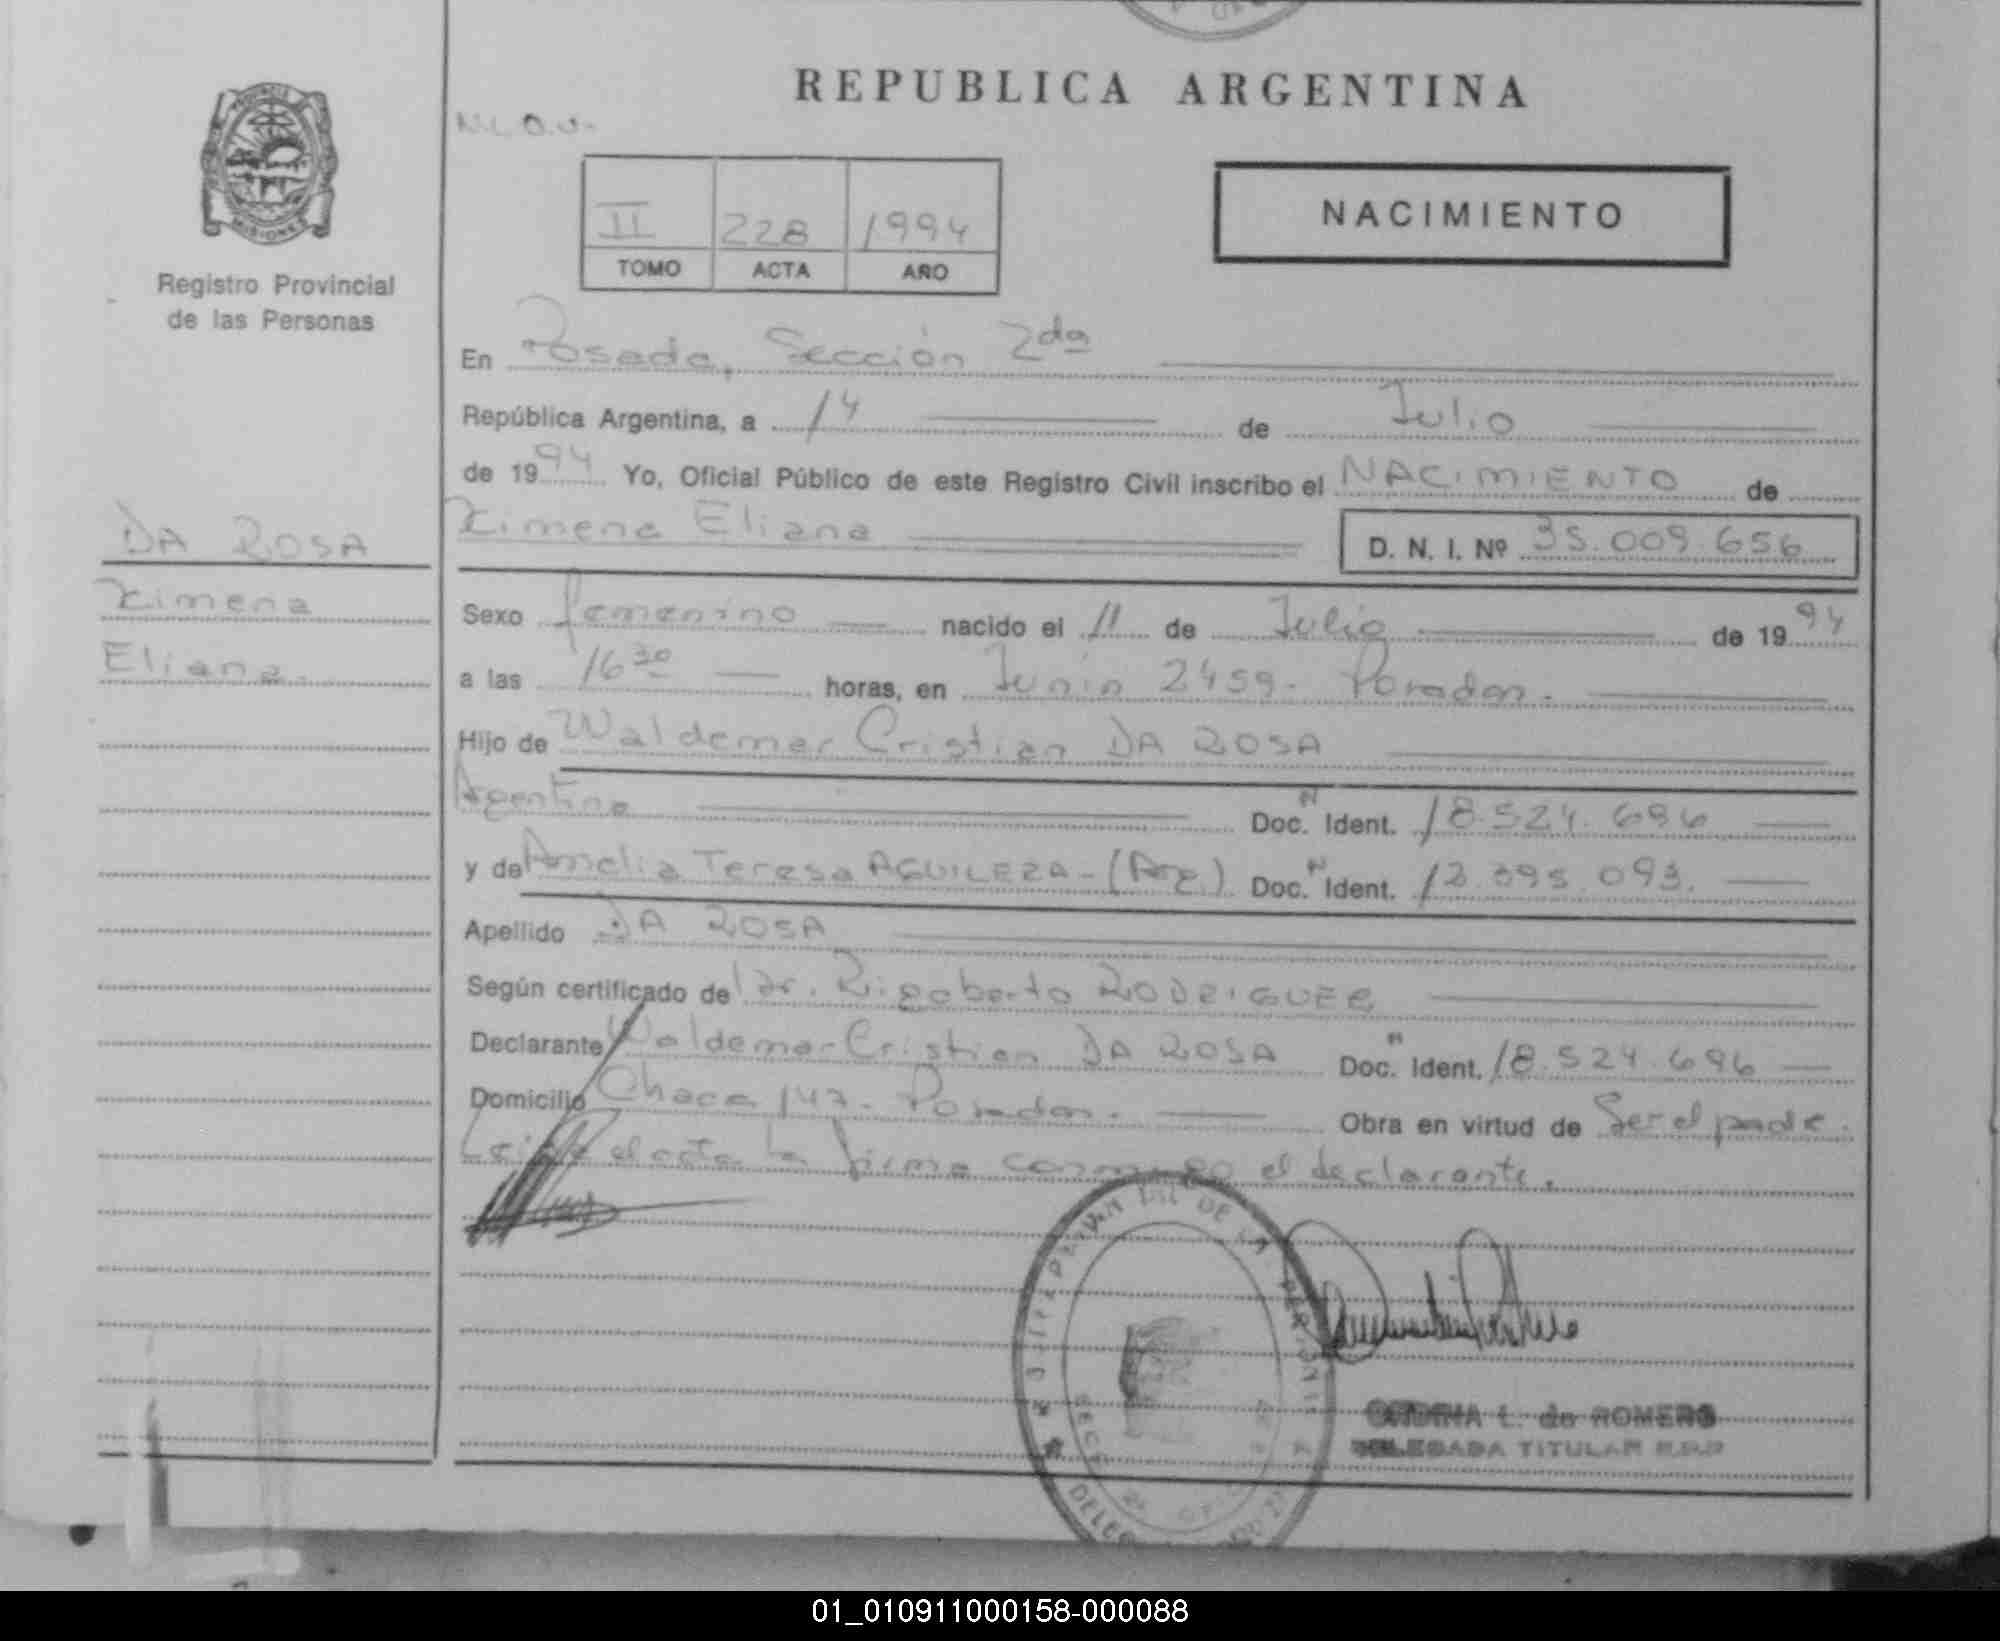 REPUBLICA ARGENTINA
PROVINCIA
MISIONES
Registro Provincial
de las Personas
II 228 1994
TOMO ACTA AÑO
NACIMIENTO
En Posadas, Sección 2da
República Argentina, a 14 de Julio
de 1994 Yo, Oficial Público de este Registro Civil inscribo el NACIMIENTO de
Ximena Eliana D. N. I. Nº 35.009.656
DA ROSA
Ximena
Eliana.
Sexo femenino nacido el 11 de Julio de 1994
a las 16 30 horas, en Junín 2459- Posadas.
Hijo de Waldemar Cristian DA ROSA
Argentina Doc. N Ident. 18.524.696
y de Amelia Teresa AGUILERA - (Arg.) Doc. N Ident. 12.395.093.
Apellido DA ROSA
Según certificado del Dr. Rigoberto RODRIGUEZ
Declarante Waldemar Cristian DA ROSA Doc. N Ident. 18.524.696
Domicilio Chaca 147- Posadas. Obra en virtud de Ser el padre.
Leida el acta la firma conmigo el declarante.
L. de ROMERO
DELEGADA TITULAR R.P.P
01_010911000158-000088